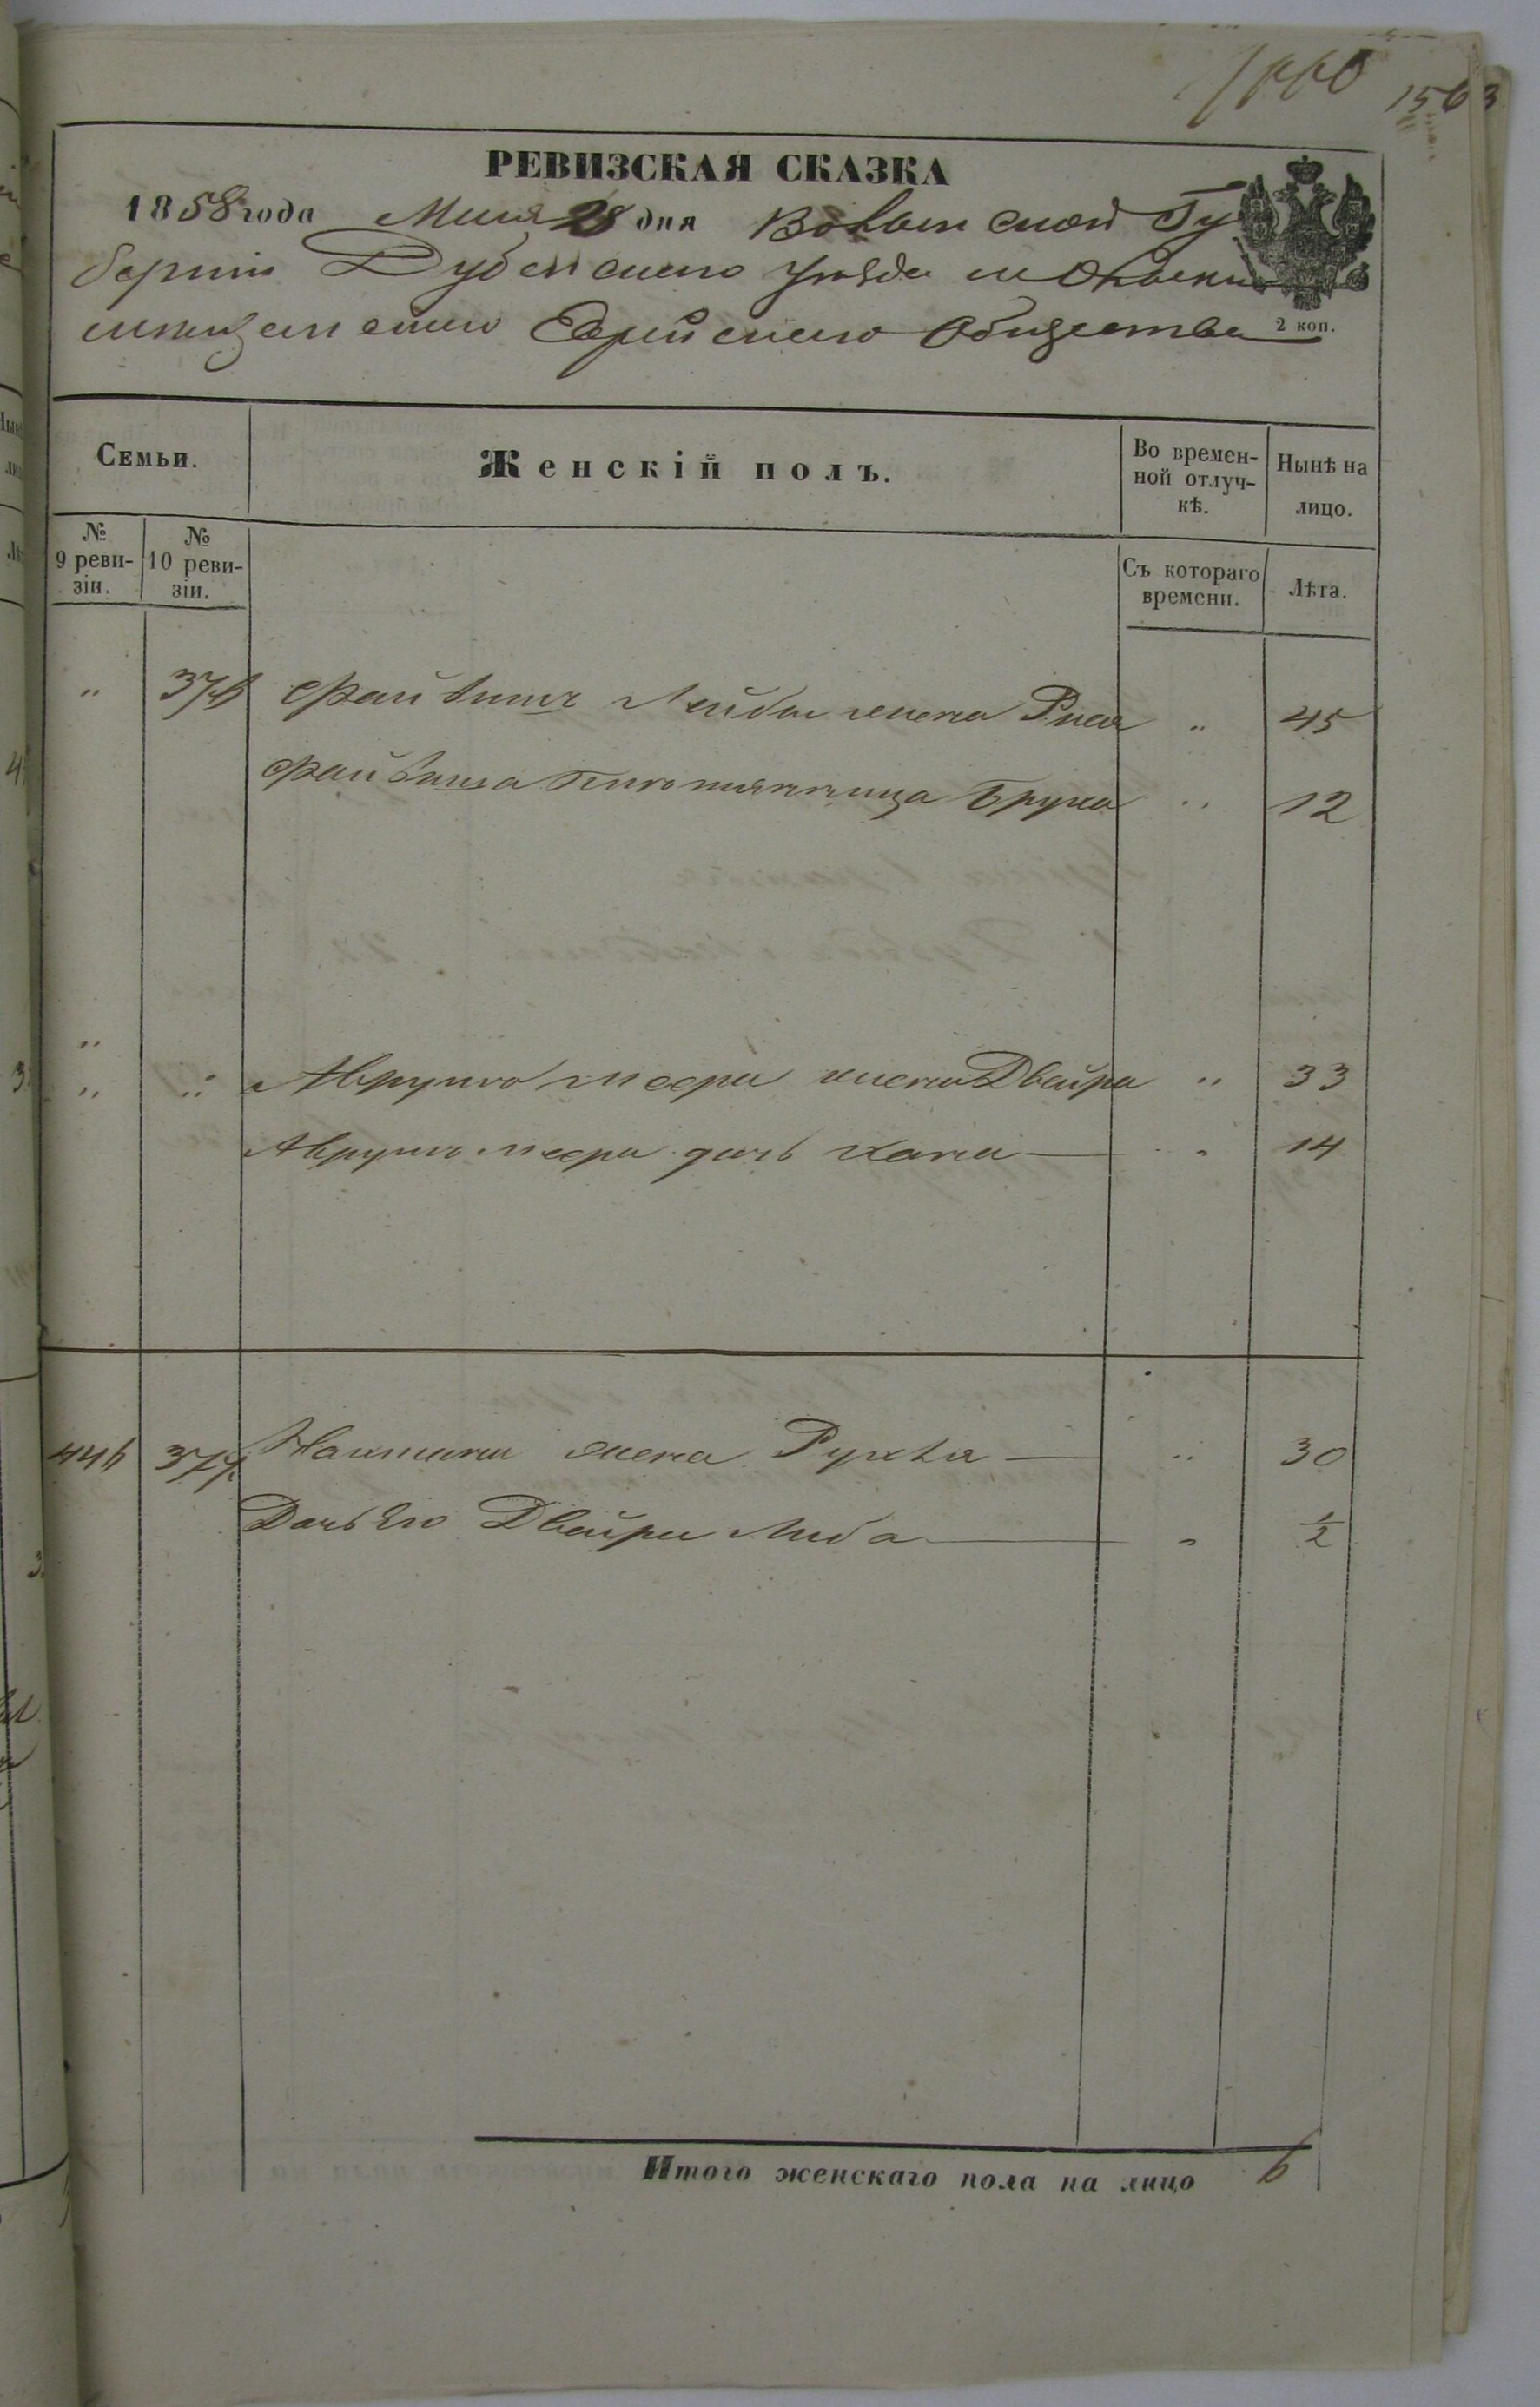 1563
РЕВИЗСКАЯ СКАЗКА
1858 года Мая 28 дня Волынской Гу
берніи Дубенскаго Уѣзда м Олыки
мѣщанскаго Еврейскаго Общества
2 коп.
Семьи.
Женскій полъ.
Во времен-
ной отлуч-
кѣ.
Нынѣ на
лицо.
№
9 реви-
зіи.
№
10 реви-
зіи.
Съ котораго
времени.
Лѣта.
" 376 Файвишъ Лейбы жена Рися " 45
Файвиша племянница Бруха " 12
"
" " Аврумъ Меера жена Двейра " 33
Аврумъ Меера дочь Хана " 14
446 377 жена Рухля " 30
Дочь Его Двейра Либа " 1/2
Итого женскаго пола на лицо 6